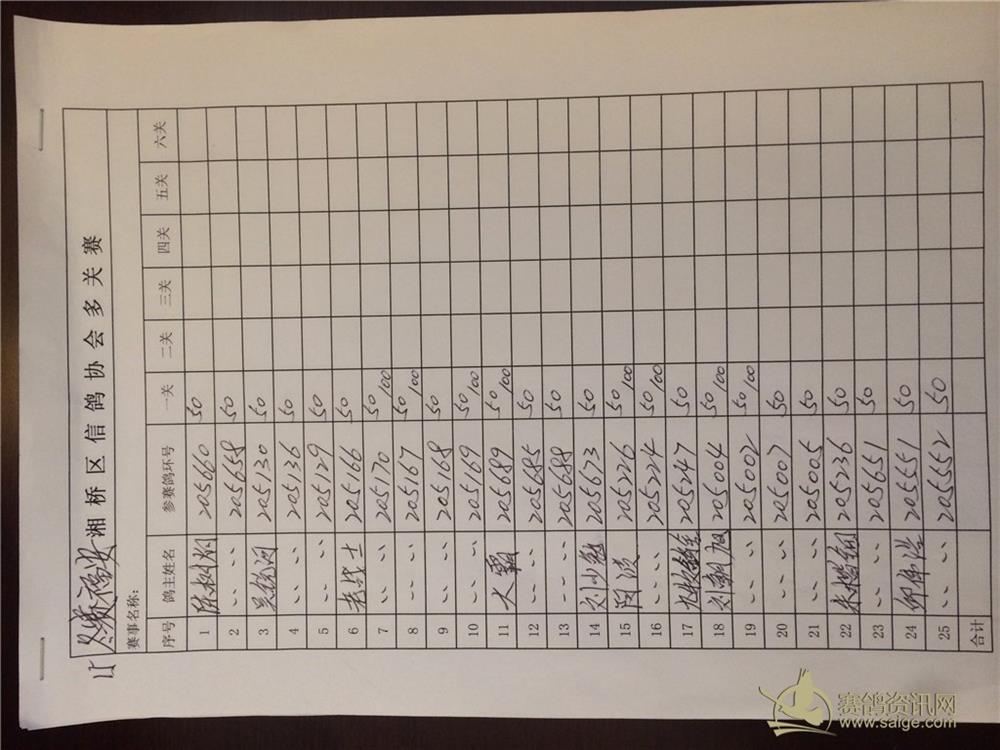 15 冬赛福安 湘桥区信鸽协会多关赛
赛事名称：
序号 鸽主姓名 参赛鸽环号 一关 二关 三关 四关 五关 六关
1 205660 50
2 〃 205658 50
3 205130 50
4 〃 205136 50
5 〃 205129 50
6 老战士 205166 50
7 〃 205170 50 100
8 〃 205167 50 100
9 〃 205168 50
10 〃 205169 50 100
11 大霸 205689 50 100
12 〃 205685 50
13 〃 205688 50
14 205673 50
15 205226 50 100
16 〃 205224 50 100
17 205247 50
18 205004 50 100
19 〃 205002 50 100
20 〃 205007 50
21 〃 205005 50
22 205236 50
23 〃 205651 50
24 205551 50
25 〃 205552 50
合计
赛鸽资讯网
www.saige.com